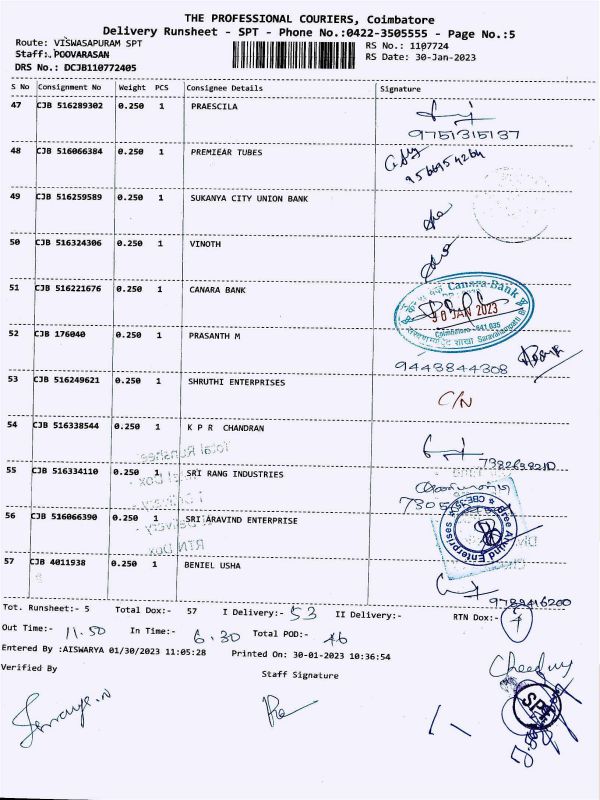 THE PROFESSIONAL COURIERS, Coimbatore
Delivery Runsheet - SPT - Phone No.:0422-3505555 - Page No.:5
Route: VISWASAPURAM SPT
RS No.: 1107724
Staff:. POOVARASAN
RS Date: 30-Jan-2023
DRS No.: DCJB110772405
S No Consignment No Weight PCS Consignee Details Signature
47 CJB 516289302 0.250 1 PRAESCILA
9751315137
48 CJB 516066384 0.250 1 PREMIEAR TUBES
49 CJB 516259589 0.250 1 SUKANYA CITY UNION BANK
50 CJB 516324306 0.250 1 VINOTH
51 CJB 516221676 0.250 1 CANARA BANK
Canara Bank
JAN 2023
Coimbatore - 641 035
52 CJB 176040 0.250 1 PRASANTH M
9443844308
53 CJB 516249621 0.250 1 SHRUTHI ENTERPRISES
C/N
54 CJB 516338544 0.250 1 K P R CHANDRAN
55 CJB 516334110 0.250 1 SRI RANG INDUSTRIES
56 CJB 516066390 0.250 1 SRI ARAVIND ENTERPRISE
57 CJB 4011938 0.250 1 BENIEL USHA
9788416200
Tot. Runsheet:- 5 Total Dox:- 57 I Delivery:- 53 II Delivery:- RTN Dox:- 4
Out Time:- 11.50 In Time:- 6.30 Total POD:- 46
Entered By :AISWARYA 01/30/2023 11:05:28 Printed On: 30-01-2023 10:36:54
Verified By
Staff Signature
SPT